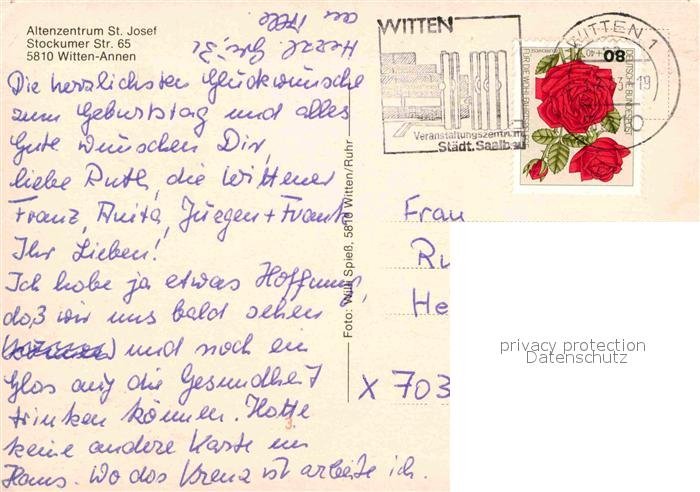 Altenzentrum St. Josef
Stockumer Str. 65
5810 Witten-Annen
Die herzlichsten Glückwünsche
zum Geburtstag und alles
Gute wünschen Dir,
liebe Ruth, die Wittener
Franz, Anita, Jürgen + Frank
Ihr Lieben!
Ich habe ja etwas Hoffnung,
daß wir uns bald sehen
und noch ein
Glas auf die Gesundheit
trinken können. Hatte
keine andere Karte im
Haus. Wo das Kreuz ist arbeite ich.
Herzl. Grüße
an Alle
Foto: Willi Spieß, 5810 Witten/Ruhr
WITTEN
Veranstaltungszentrum
Städt. Saalbau
WITTEN 1
80
DEUTSCHE BUNDESPOST
Frau
Ru
He
X 703
privacy protection
Datenschutz